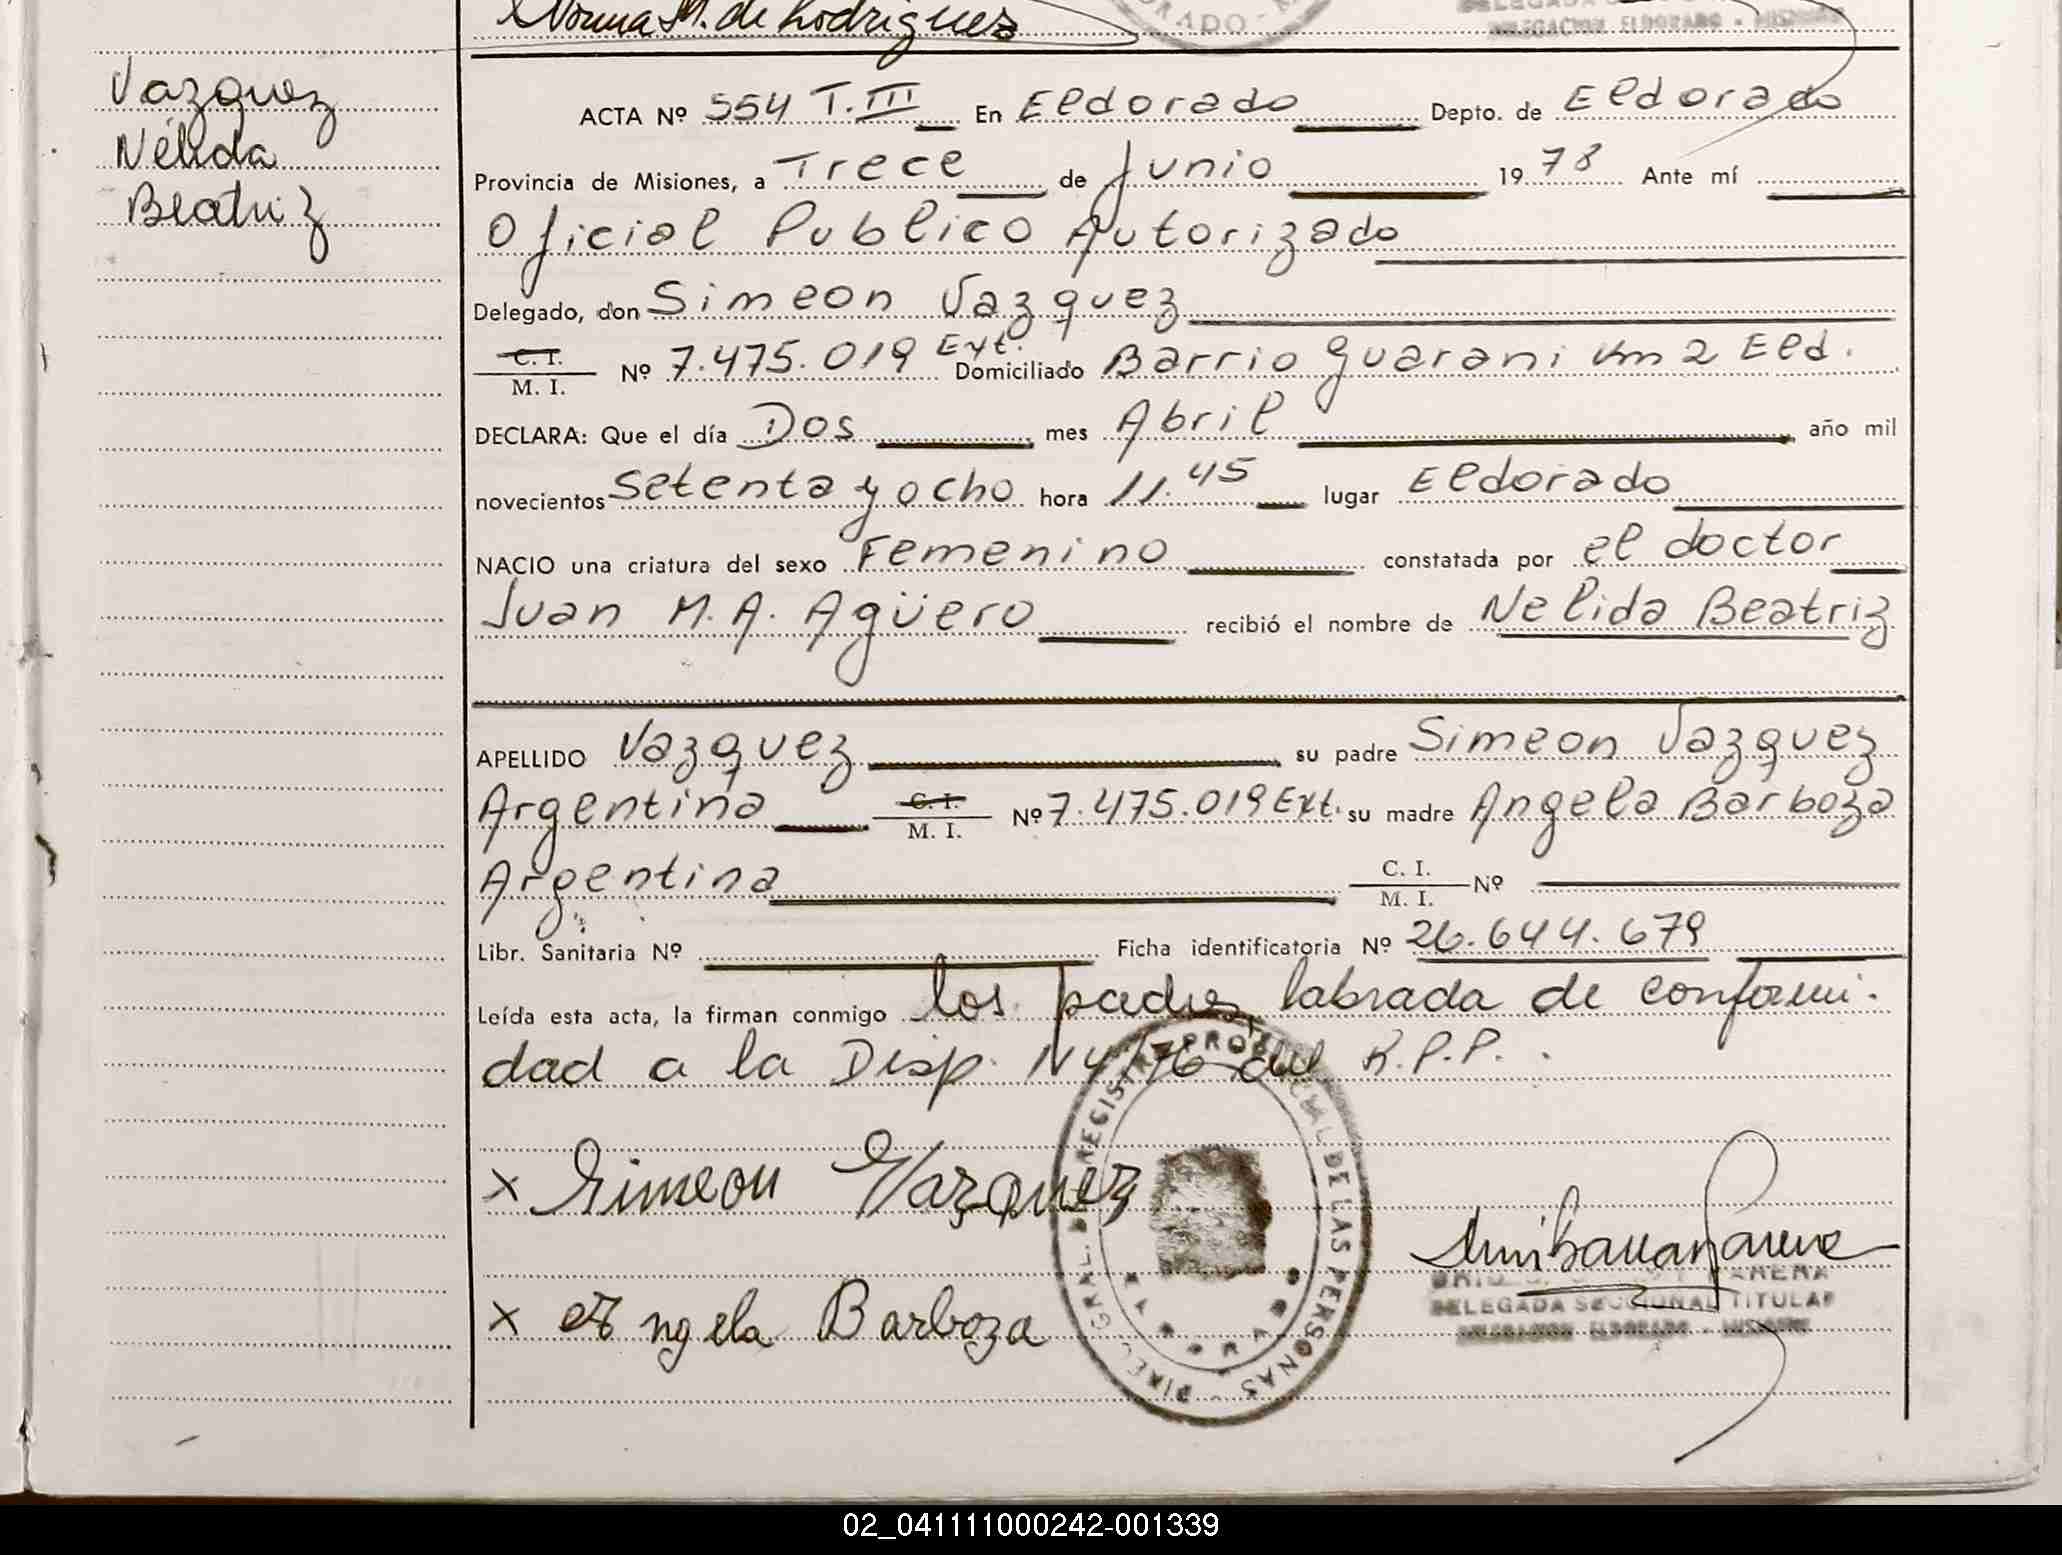 Norma M. de Rodriguez
ORADO - M
DELEGACION ELDORADO - MISIONES
Vazquez
Nélida
Beatriz
ACTA Nº 554 T.III En Eldorado Depto. de Eldorado
Provincia de Misiones, a Trece de Junio 1978 Ante mí
Oficial Publico Autorizado
Delegado, don Simeon Vazquez
C. I.
M. I. Nº 7.475.019 Ext. Domiciliado Barrio Guarani Km 2 Eld.
DECLARA: Que el día Dos mes Abril año mil
novecientos Setenta y ocho hora 11.45 lugar Eldorado
NACIO una criatura del sexo Femenino constatada por el doctor
Juan M. A. Agüero recibió el nombre de Nelida Beatriz
APELLIDO Vazquez su padre Simeon Vazquez
Argentina C. I. M. I. Nº 7.475.019 Ext. su madre Angela Barboza
Argentina C. I. M. I. Nº
Libr. Sanitaria Nº Ficha identificatoria Nº 26.644.679
Leída esta acta, la firman conmigo los padres, labrada de conformi-
dad a la Disp. N 4/76 del R.P.P.
DIREC. GRAL. DE REGISTRO PROVINCIAL DE LAS PERSONAS
x Simeon Vazquez
x Angela Barboza
DELEGADA SECCIONAL TITULAR
DELEGACION ELDORADO - MISIONES
02_041111000242-001339